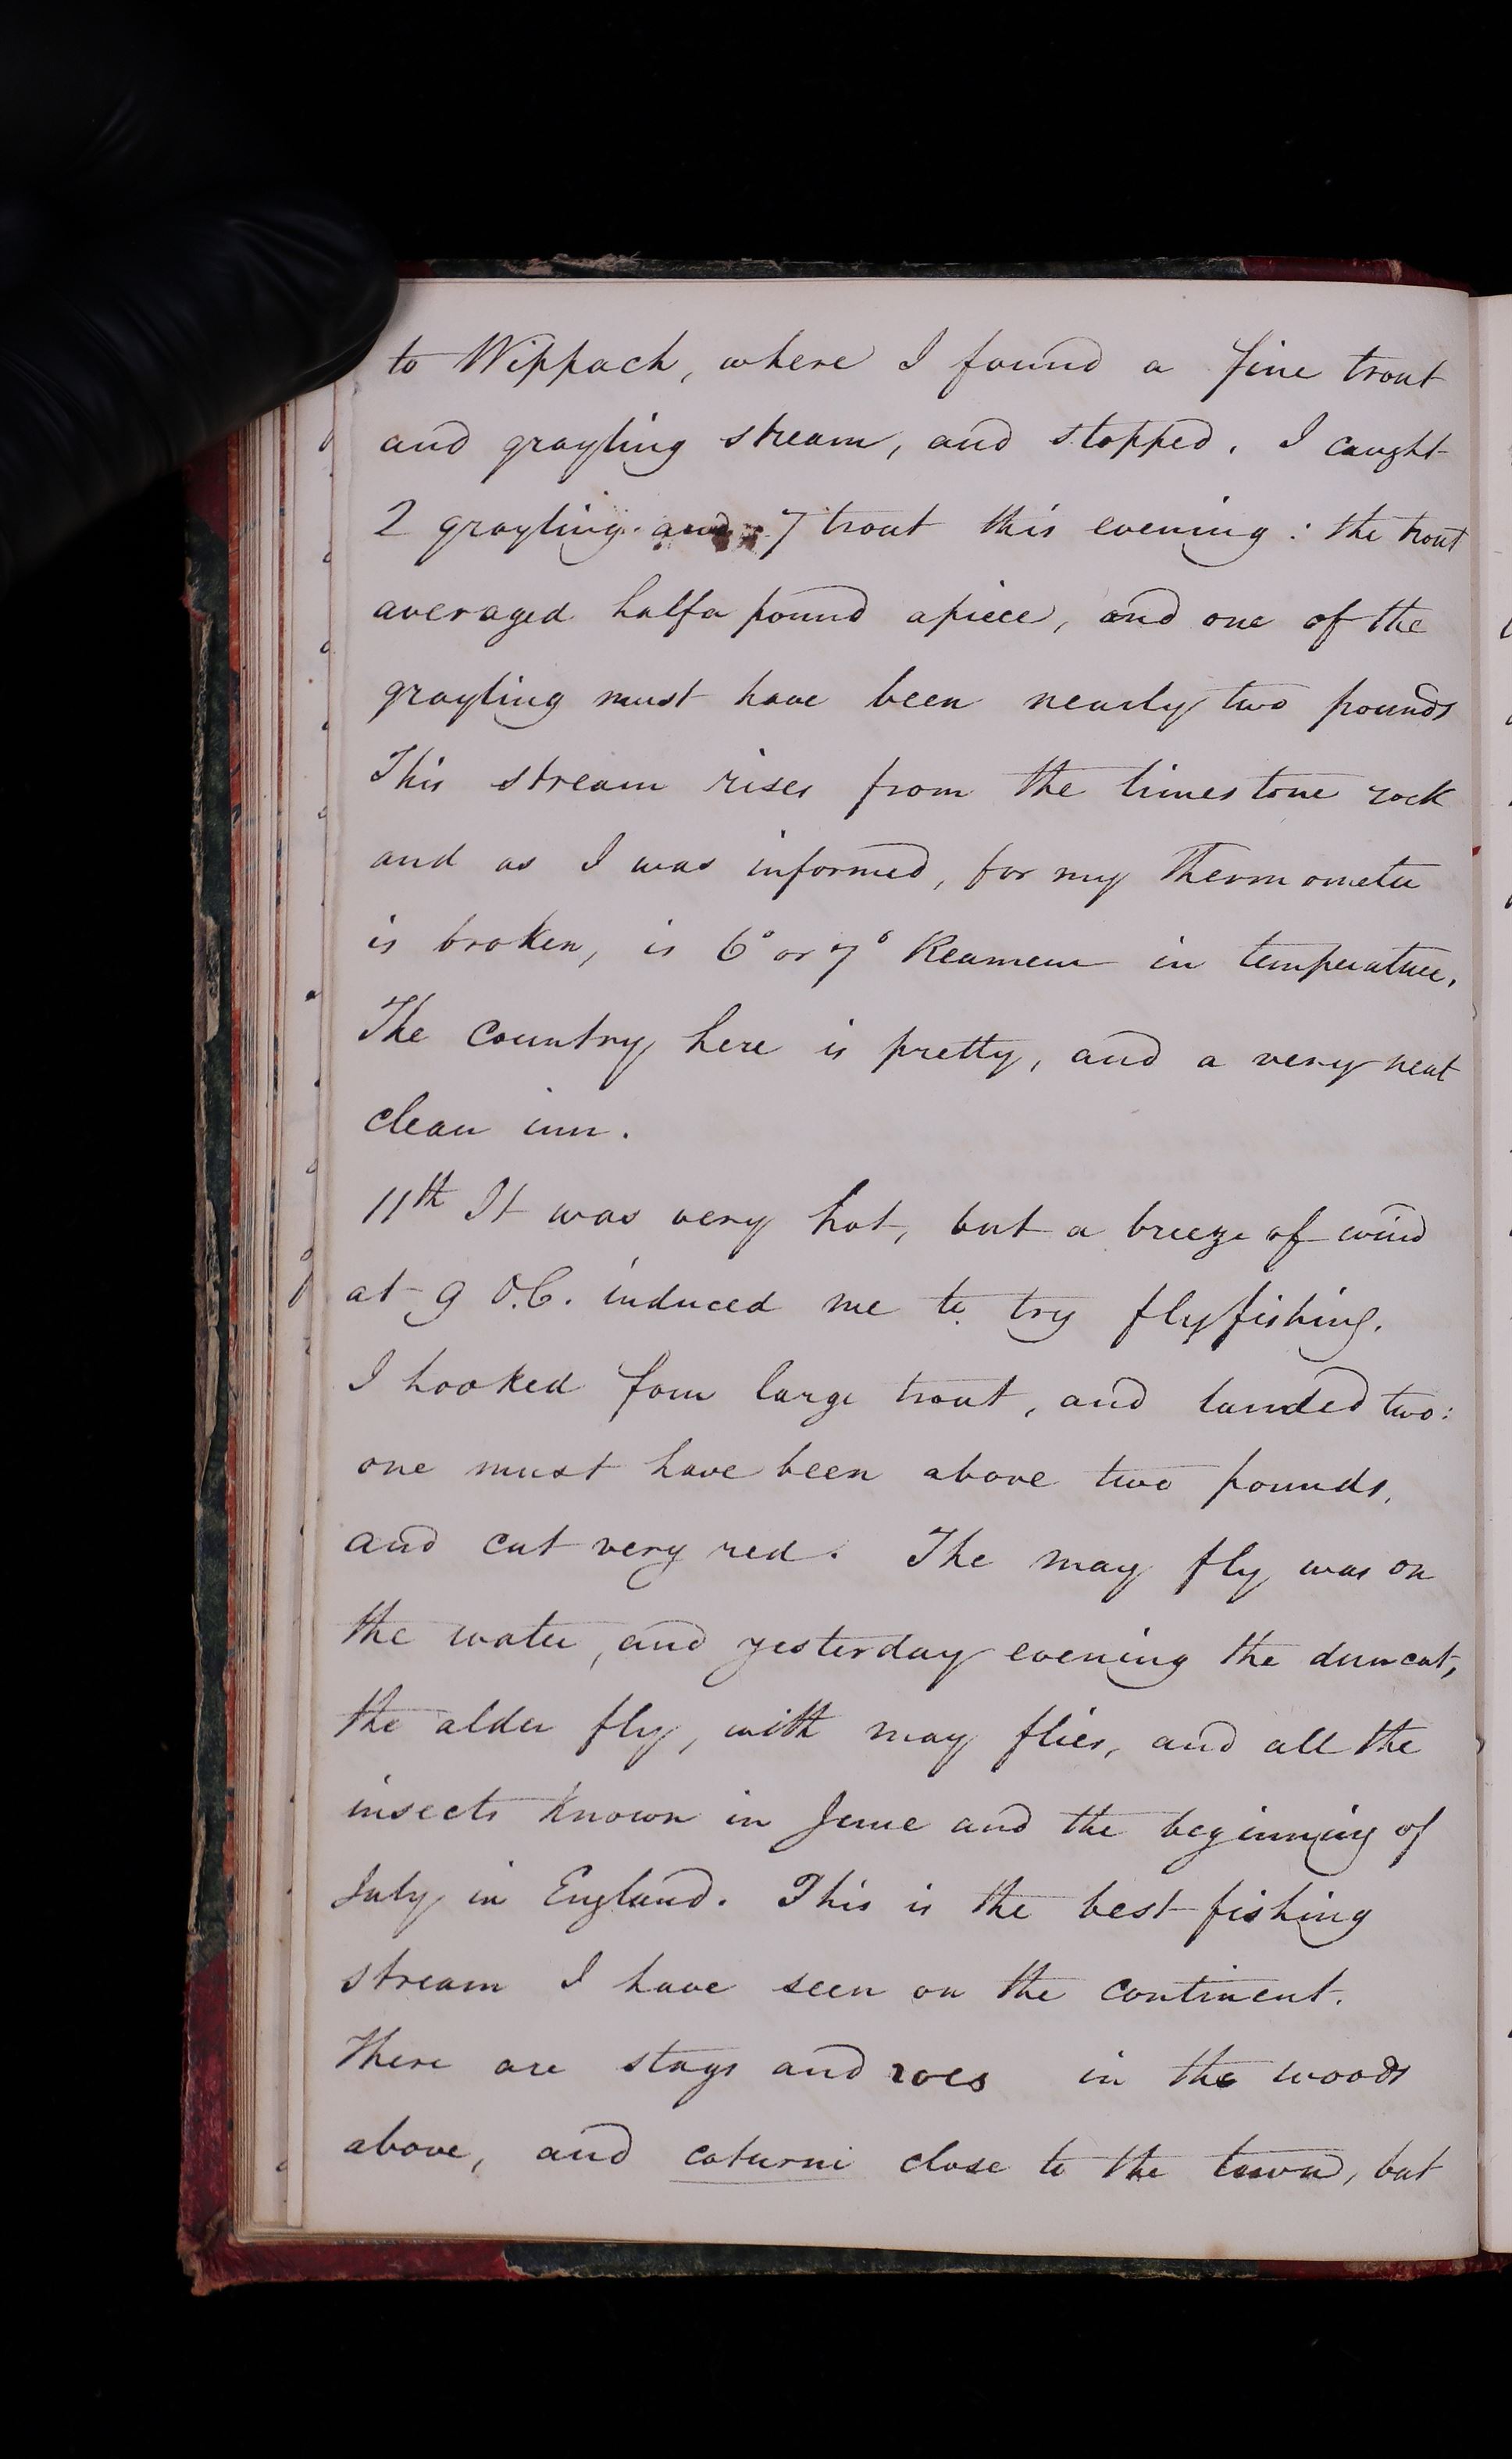 to Wippach, where I found a fine trout
and grayling stream, and stopped. I caught
2 grayling and 7 trout this evening: the trout
averaged half a pound apiece, and one of the
grayling must have been nearly two pounds
This stream rises from the limestone rock
and as I was informed, for my Thermometer
is broken, is 6° or 7° Reaumeur in temperature.
The country here is pretty, and a very neat
clean inn.
11th It was very hot, but a breeze of wind
at 9 O.C. induced me to try flyfishing.
I hooked four large trout, and landed two:
one must have been above two pounds,
and cut very red. The may fly was on
the water, and yesterday evening the duncut,
the alder fly, with may flies, and all the
insects known in June and the beginning of
July in England. This is the best fishing
stream I have seen on the continent.
There are stags and roes in the woods
above, and coturni close to the town, but